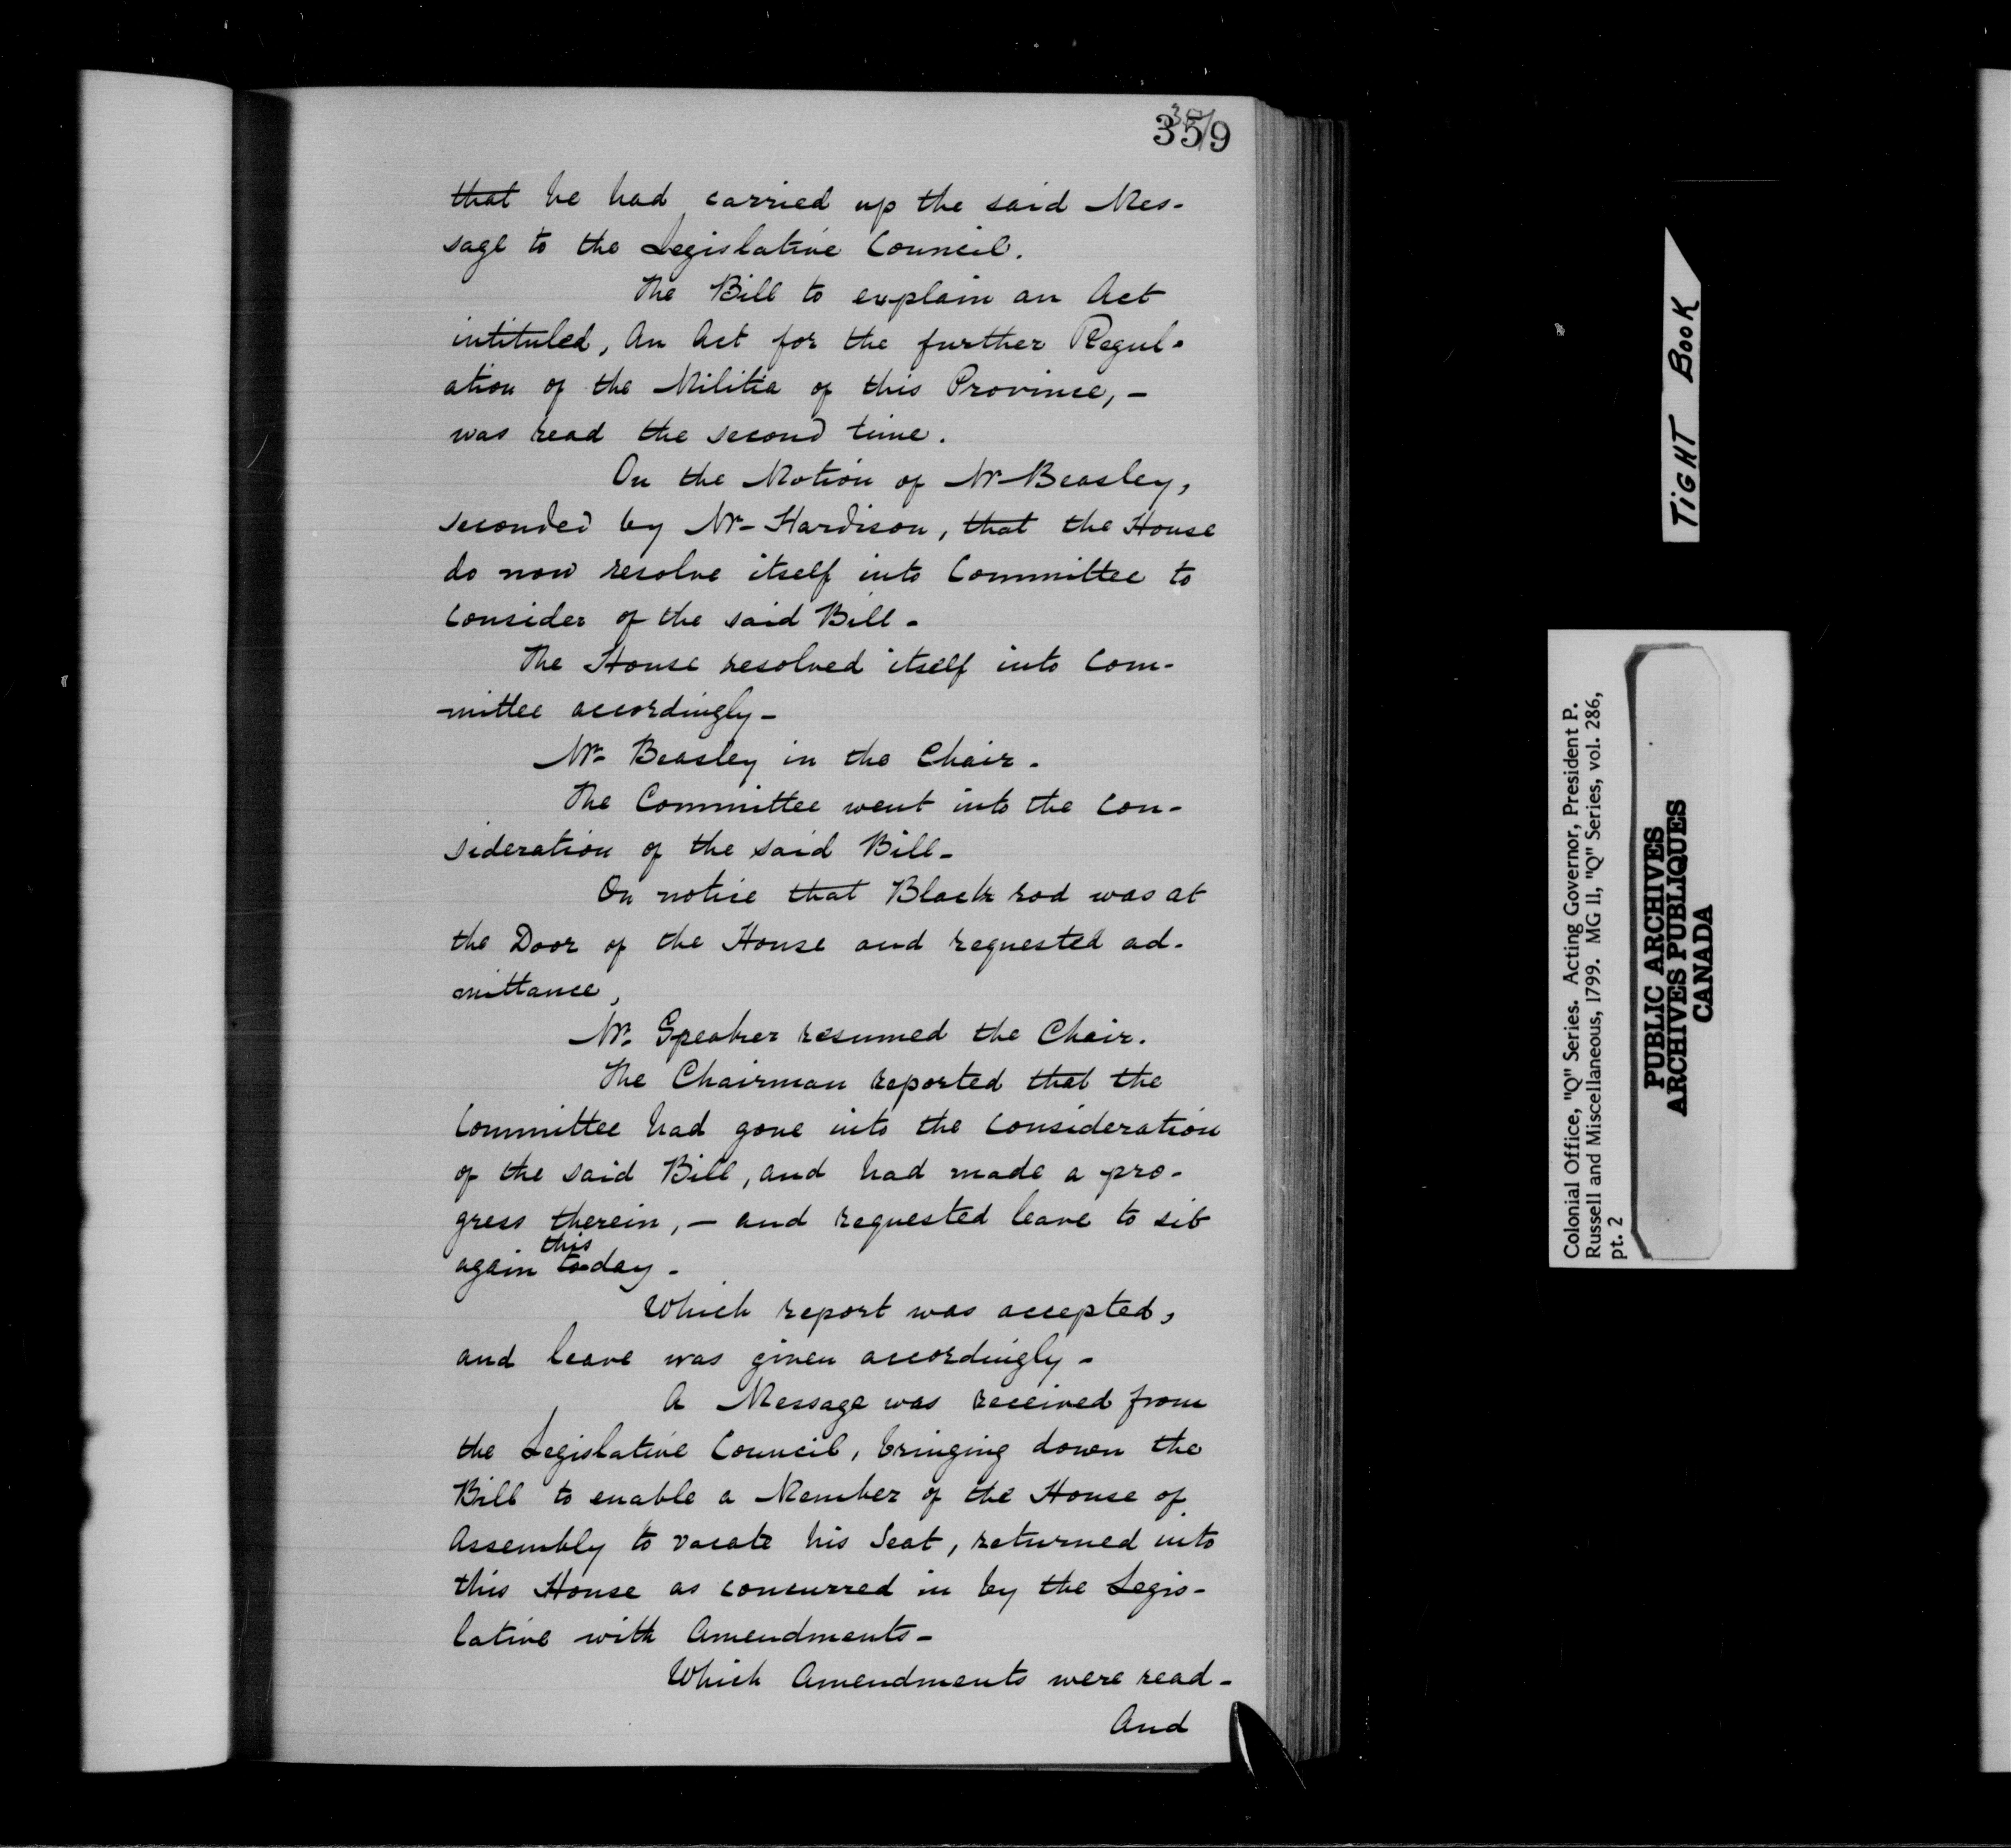 359
that he had carried up the said Mes-
sage to the Legislative Council.
The Bill to explain an Act
intituled, An Act for the further Regul-
ation of the Militia of this Province, -
was read the second time.
On the Motion of Mr Beasley,
seconded by Mr Hardison, that the House
do now resolve itself into Committee to
consider of the said Bill -
The House resolved itself into Com-
-mittee accordingly -
Mr Beasley in the Chair.
The Committee went into the con-
sideration of the said Bill -
On notice that Black rod was at
the Door of the House and requested ad-
mittance,
Mr. Speaker resumed the Chair.
The Chairman reported that the
Committee had gone into the consideration
of the said Bill, and had made a pro-
gress therein, - and requested leave to sit
this
again to day -
Which report was accepted,
and leave was given accordingly -
A Message was received from
the Legislative Council, bringing down the
Bill to enable a Member of the House of
Assembly to vacate his Seat, returned into
this House as concurred in by the Legis-
lative with Amendments -
Which Amendments were read -
And
TIGHT BOOK
Colonial Office, "Q" Series. Acting Governor, President P.
Russell and Miscellaneous, 1799. MG 11, "Q" Series, vol. 286,
pt. 2
PUBLIC ARCHIVES
ARCHIVES PUBLIQUES
CANADA